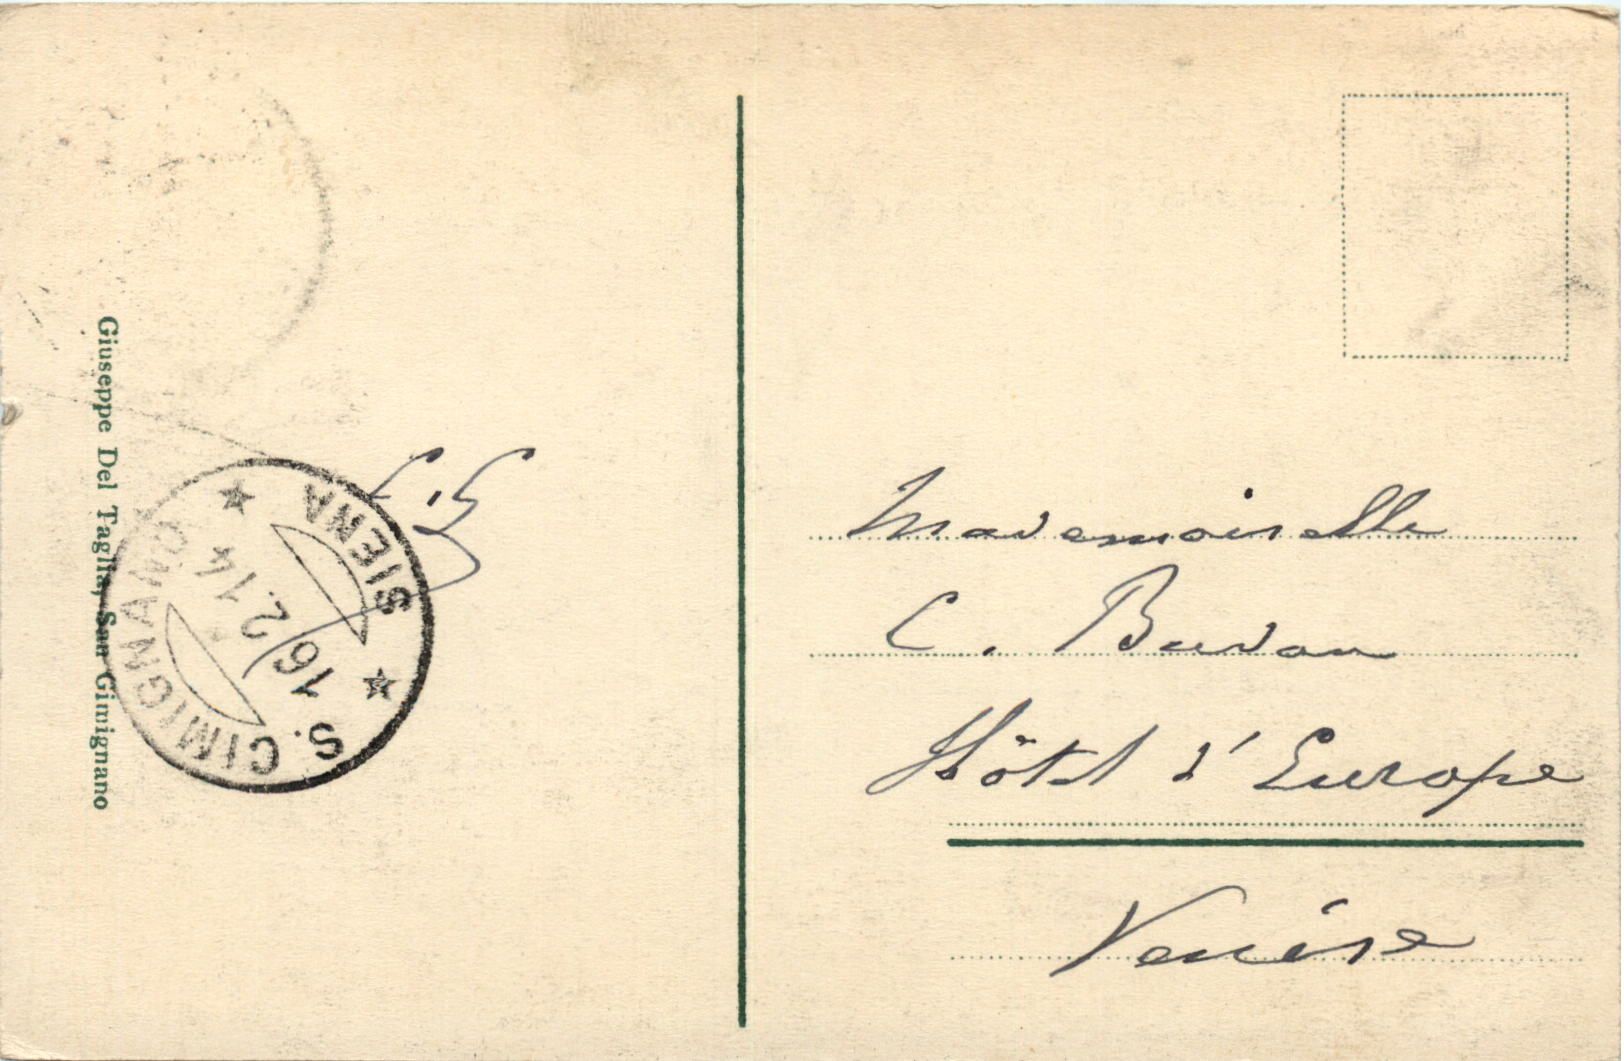 Giuseppe Del Taglia, San Gimignano
S. GIMIGNANO
16 2.14
SIENA
Mademoiselle
C.
Hôtel d'Europe
Venise